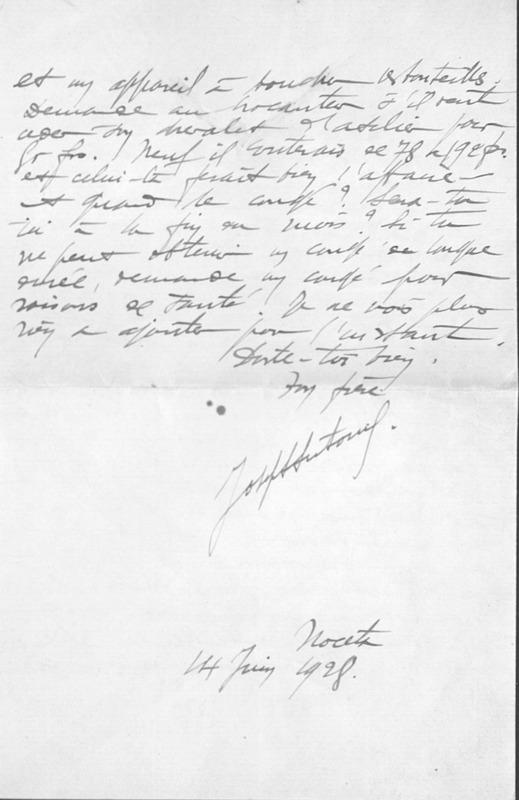 et un appareil à boucher les bouteilles.
Demande au brocanteur s'il veut
céder son chevalet d'atelier pour
50 frs. Neuf il coûterait de 78 à
et celui-là ferait bien l'affaire
et quand le congé? Seras-tu
ici à la fin du mois? Si tu
ne peux obtenir un congé de longue
durée, demande un congé pour
raisons de santé. Je ne vois plus
rien à ajouter pour l'instant.
Porte-toi bien.
Ton frère
Joseph Antoine.
Noceta
14 Juin 1928.